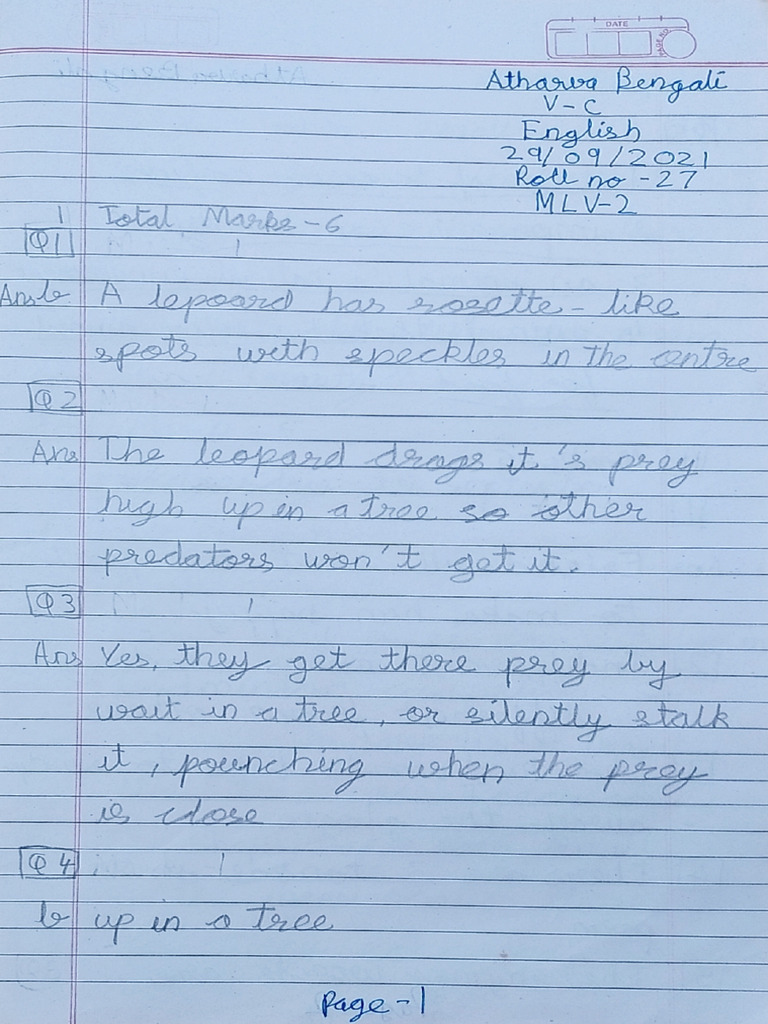 DATE
PAGE NO.
Atharva Bengali
V-C
English
29/09/2021
Roll no -27
MLV-2
1 Total Marks-6
Q1 1
Ans b A lepoard has rosette-like
spots with speckles in the centre
Q2
Ans The leopard drags it's prey
high up in a tree so other
predators won't get it.
Q3 1
Ans Yes, they get there prey by
wait in a tree, or silently stalk
it, pounching when the prey
is close
Q4 1
b up in a tree
Page-1